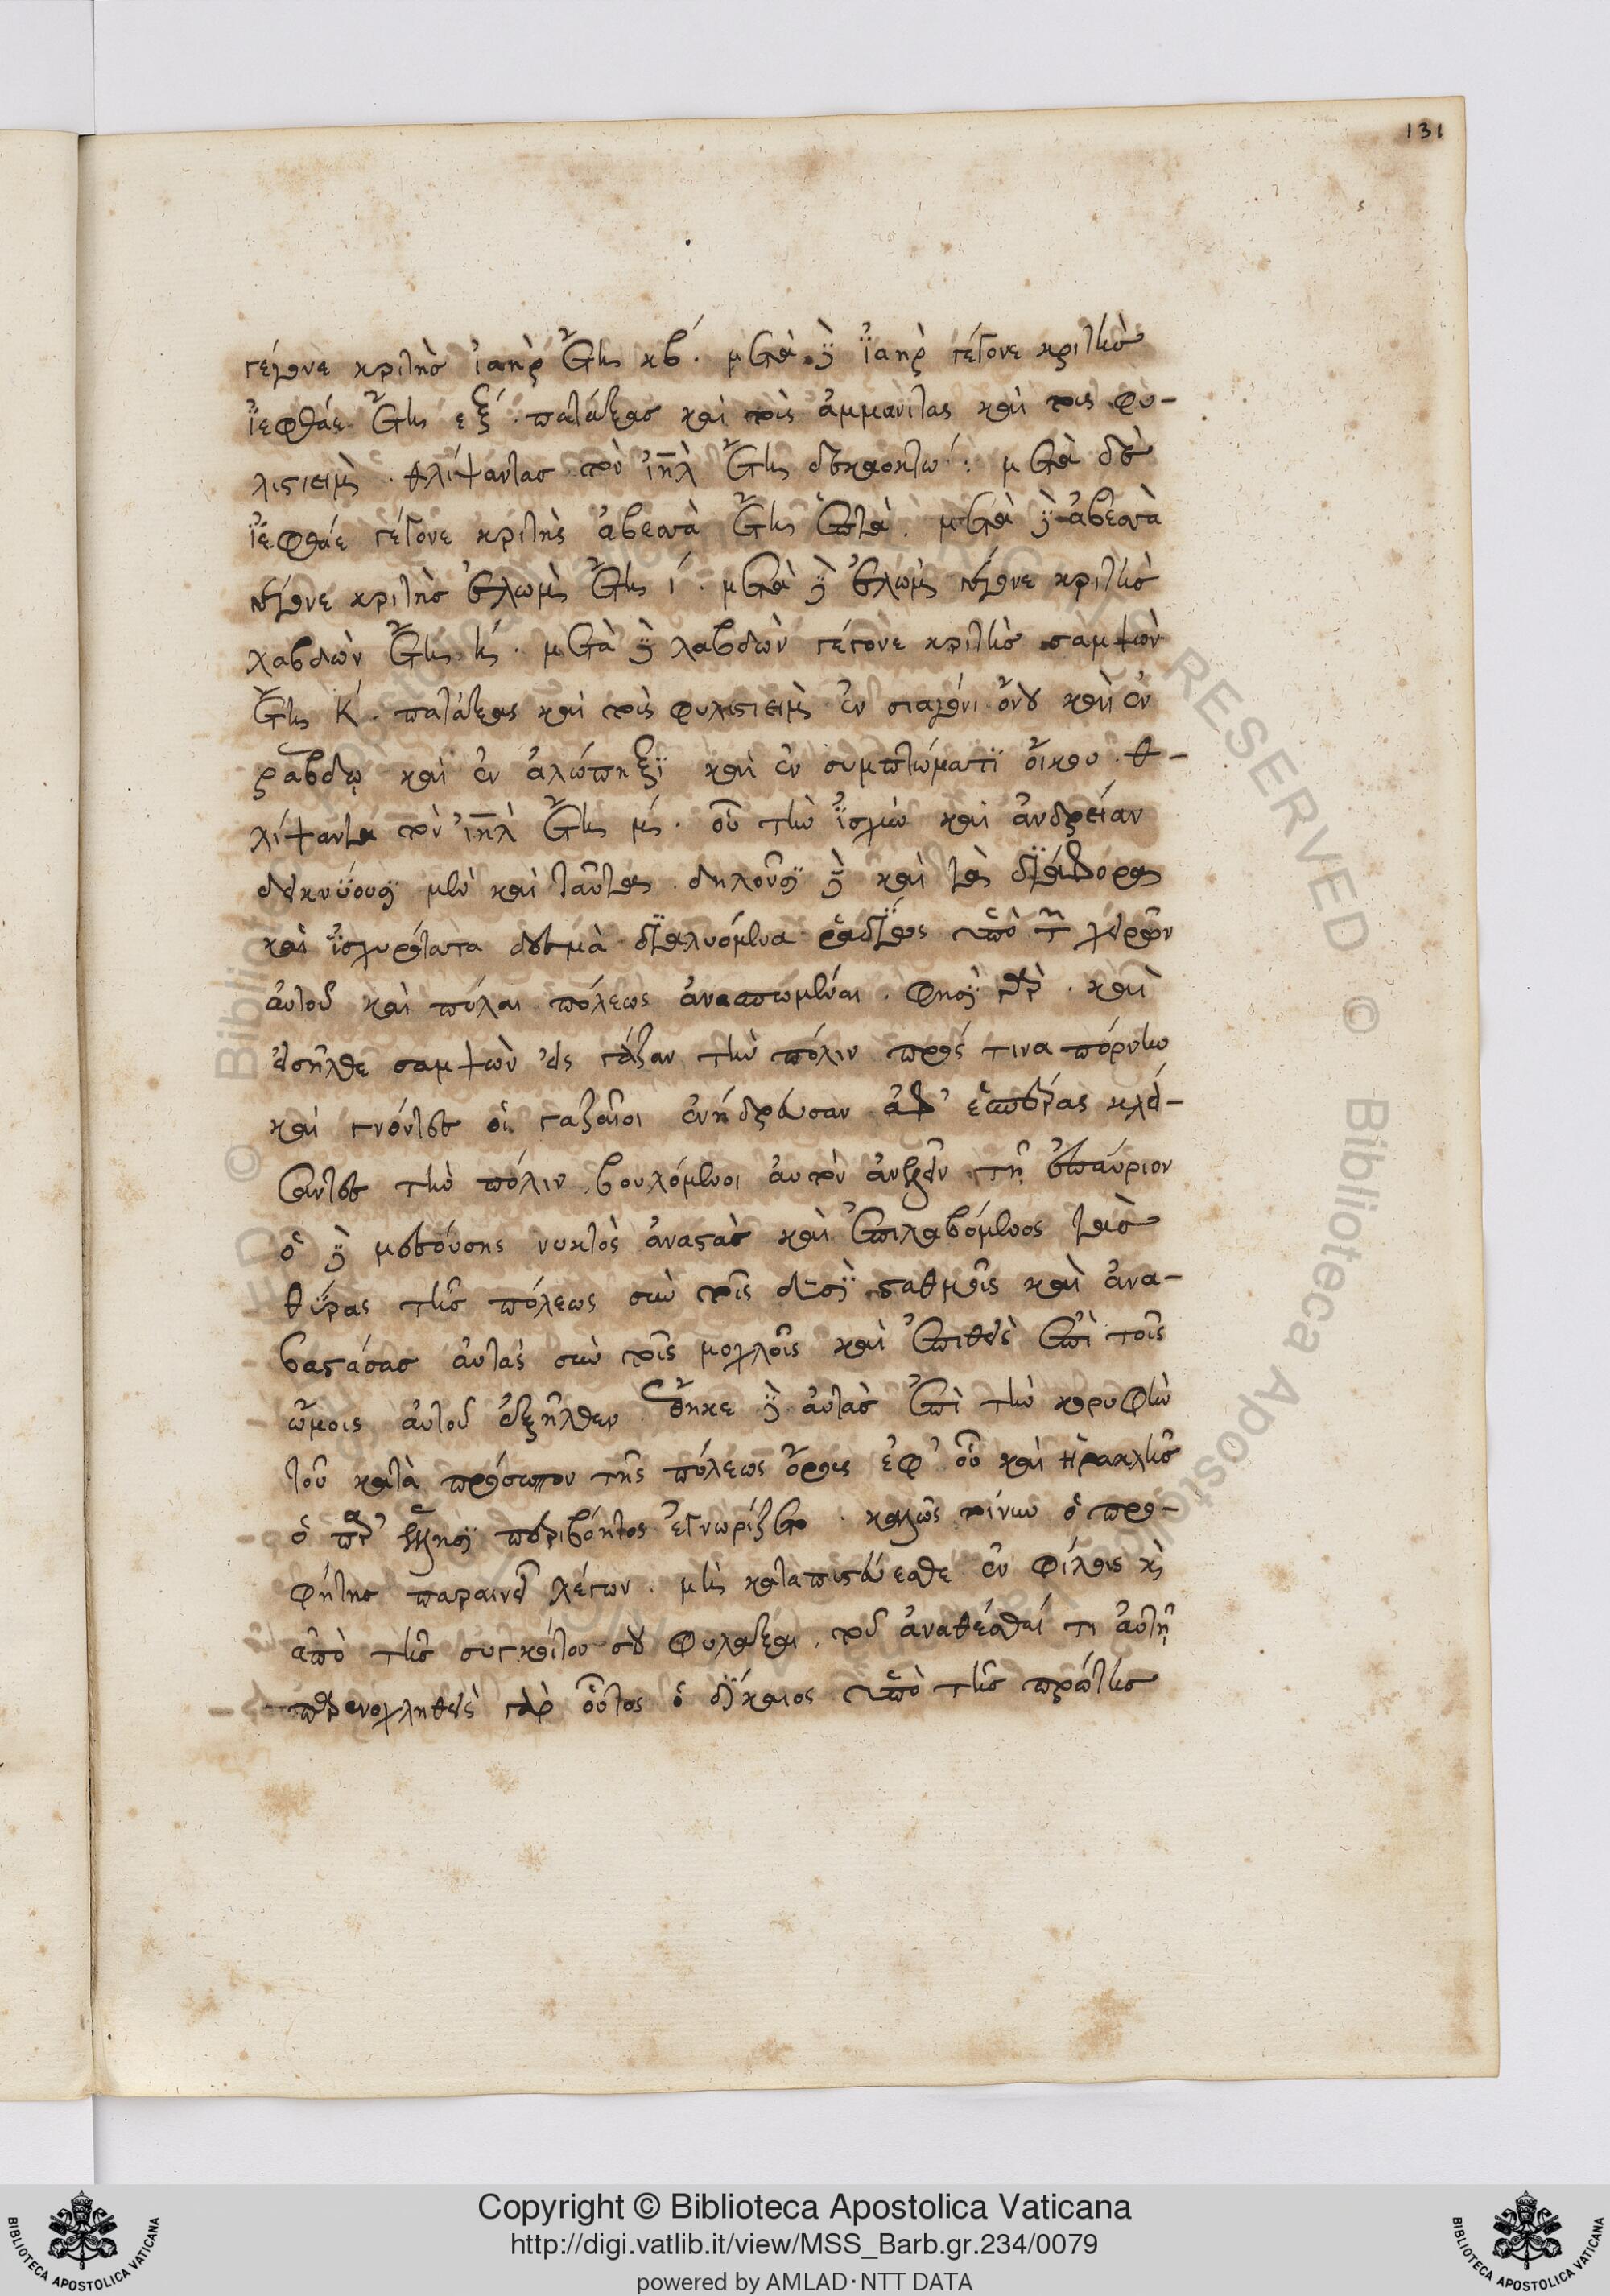 131
γέγονε κριτὴσ ἰαὴρ ἔτη κβ. μετὰ δὲ ἰαὴρ γέγονε κριτὴσ
ἰεφθάε ἔτη εξ. πατάξασ καὶ τοὺς ἀμμανίτας καὶ τους φυ-
λιστιεὶμ. θλίψαντασ τὸν ἰηλ ἔτη δεκαοκτώ: μετὰ δὲ
ἰεφθάε γέγονε κριτὴς ἀβεσσὰ ἔτη ἑπτά. μετὰ δὲ ἀβεσσὰ
γέγονε κριτὴσ ἐλὼμ ἔτη ί. μετὰ δὲ ἐλὼμ γέγονε κριτὴσ
χαβδὼν ἔτη η. μετὰ δὲ λαβδὼν γέγονε κριτὴσ σαμψὼν
ἔτη κ. πατάξας καὶ τοὺς φυλιστιεὶμ ἐν σιαγόνι ὄνου καὶ ἐν
ραβδῳ καὶ ἐν ἀλώπηξι καὶ ἐν συμπτώματι οἴκου. θ-
λίψαντα τὸν ἰηλ ἔτη μ. οὗ τὴν ἰσχὺν καὶ ἀνδρείαν
δεικνύουσι μὲν καὶ ταῦτα. δηλοῦσι δὲ καὶ τὰ διάφορα
καὶ ἰσχυρότατα δεσμὰ διαλυόμενα ραδίως ὑπὸ τῶν χειρῶν
αὐτοῦ καὶ πύλαι πόλεως ἀνασπώμεναι. φησὶ γὰρ. καὶ
εἰσῆλθε σαμψὼν εἰς γάζαν τὴν πόλιν πρός τινα πόρνην
καὶ γνόντες οἱ γαζαῖοι ἐνήδρευσαν ἀφ' ἑσπέρας κλεί-
σαντες τὴν πόλιν, βουλόμενοι αὐτὸν ἀνελεῖν τῇ ἐπαύριον
ὁ δὲ μεσούσης νυκτὸς ἀναστὰσ καὶ ἐπιλαβόμενος τὰσ
θύρας τῆσ πόλεως σὺν τοῖς δυσὶ σταθμοῖς καὶ ἀνα-
βαστάσασ αὐτὰς σὺν τοῖς μοχλοῖς καὶ ἐπιθεὶς ἐπὶ τοῖς
ὤμοις αὐτοῦ ἐξῆλθεν ἔθηκε δὲ αὐτὰσ ἐπὶ τὴν κορυφὴν
τοῦ κατὰ πρόσωπον τῆς πόλεως ὄρους ἐφ' οὗ καὶ ἡρακλῆσ
ὁ παρ' ἕλλησι περιβόητος ἐγνωρίζετο. καλῶς τοίνυν ὁ προ-
φήτησ παραινεῖ λέγων. μὴ καταπιστεύεσθε ἐν φίλοις κὶ
ἀπὸ τῆσ συγκοίτου σου φυλάξαι. τοῦ ἀναθέσθαί τι αὐτῇ
παρενοχληθεὶς γὰρ οὗτος ὁ δίκαιος ὑπὸ τῆσ πρώτησ
Copyright © Biblioteca Apostolica Vaticana
http://digi.vatlib.it/view/MSS_Barb.gr.234/0079
powered by AMLAD·NTT DATA